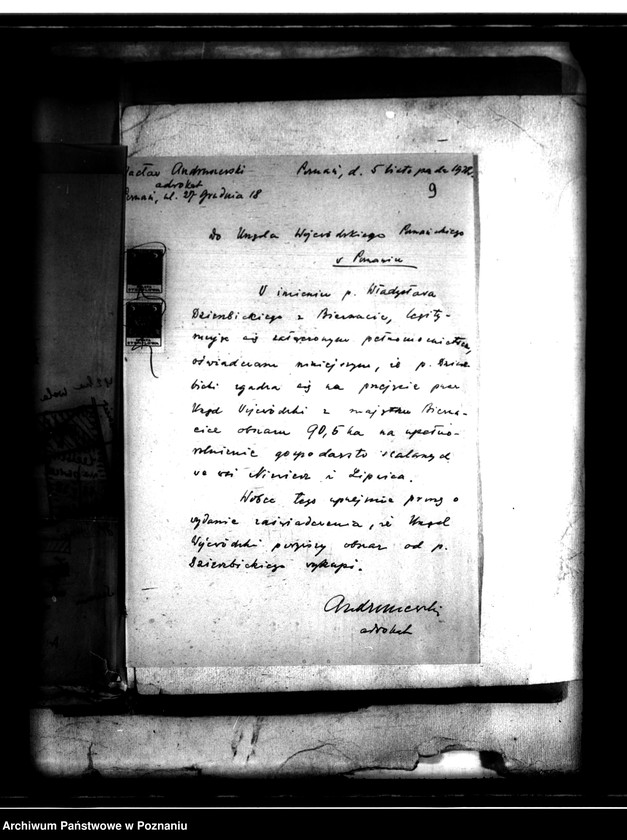 Wacław Andrunewski
adwokat
Poznań, ul. 27 Grudnia 18
Poznań, d. 5 listopada
9
Do Urzędu Wojewódzkiego Poznańskiego
w Poznaniu
W imieniu p. Władysława
Dzierzbickiego z Biernacic, legity-
mując się załączonym pełnomocnictwem,
oświadczam niniejszym, że p. Dzierz-
bicki zgadza się na przejęcie przez
Urząd Wojewódzki z majątku Bierna-
cice obszaru 90,5 ha na upełno-
rolnienie gospodarstw scalanych
we wsi Niewiesz i Lipnica.
Wobec tego uprzejmie proszę o
wydanie zaświadczenia, że Urząd
Wojewódzki powyższy obszar od p.
Dzierzbickiego wykupi.
adwokat
Archiwum Państwowe w Poznaniu